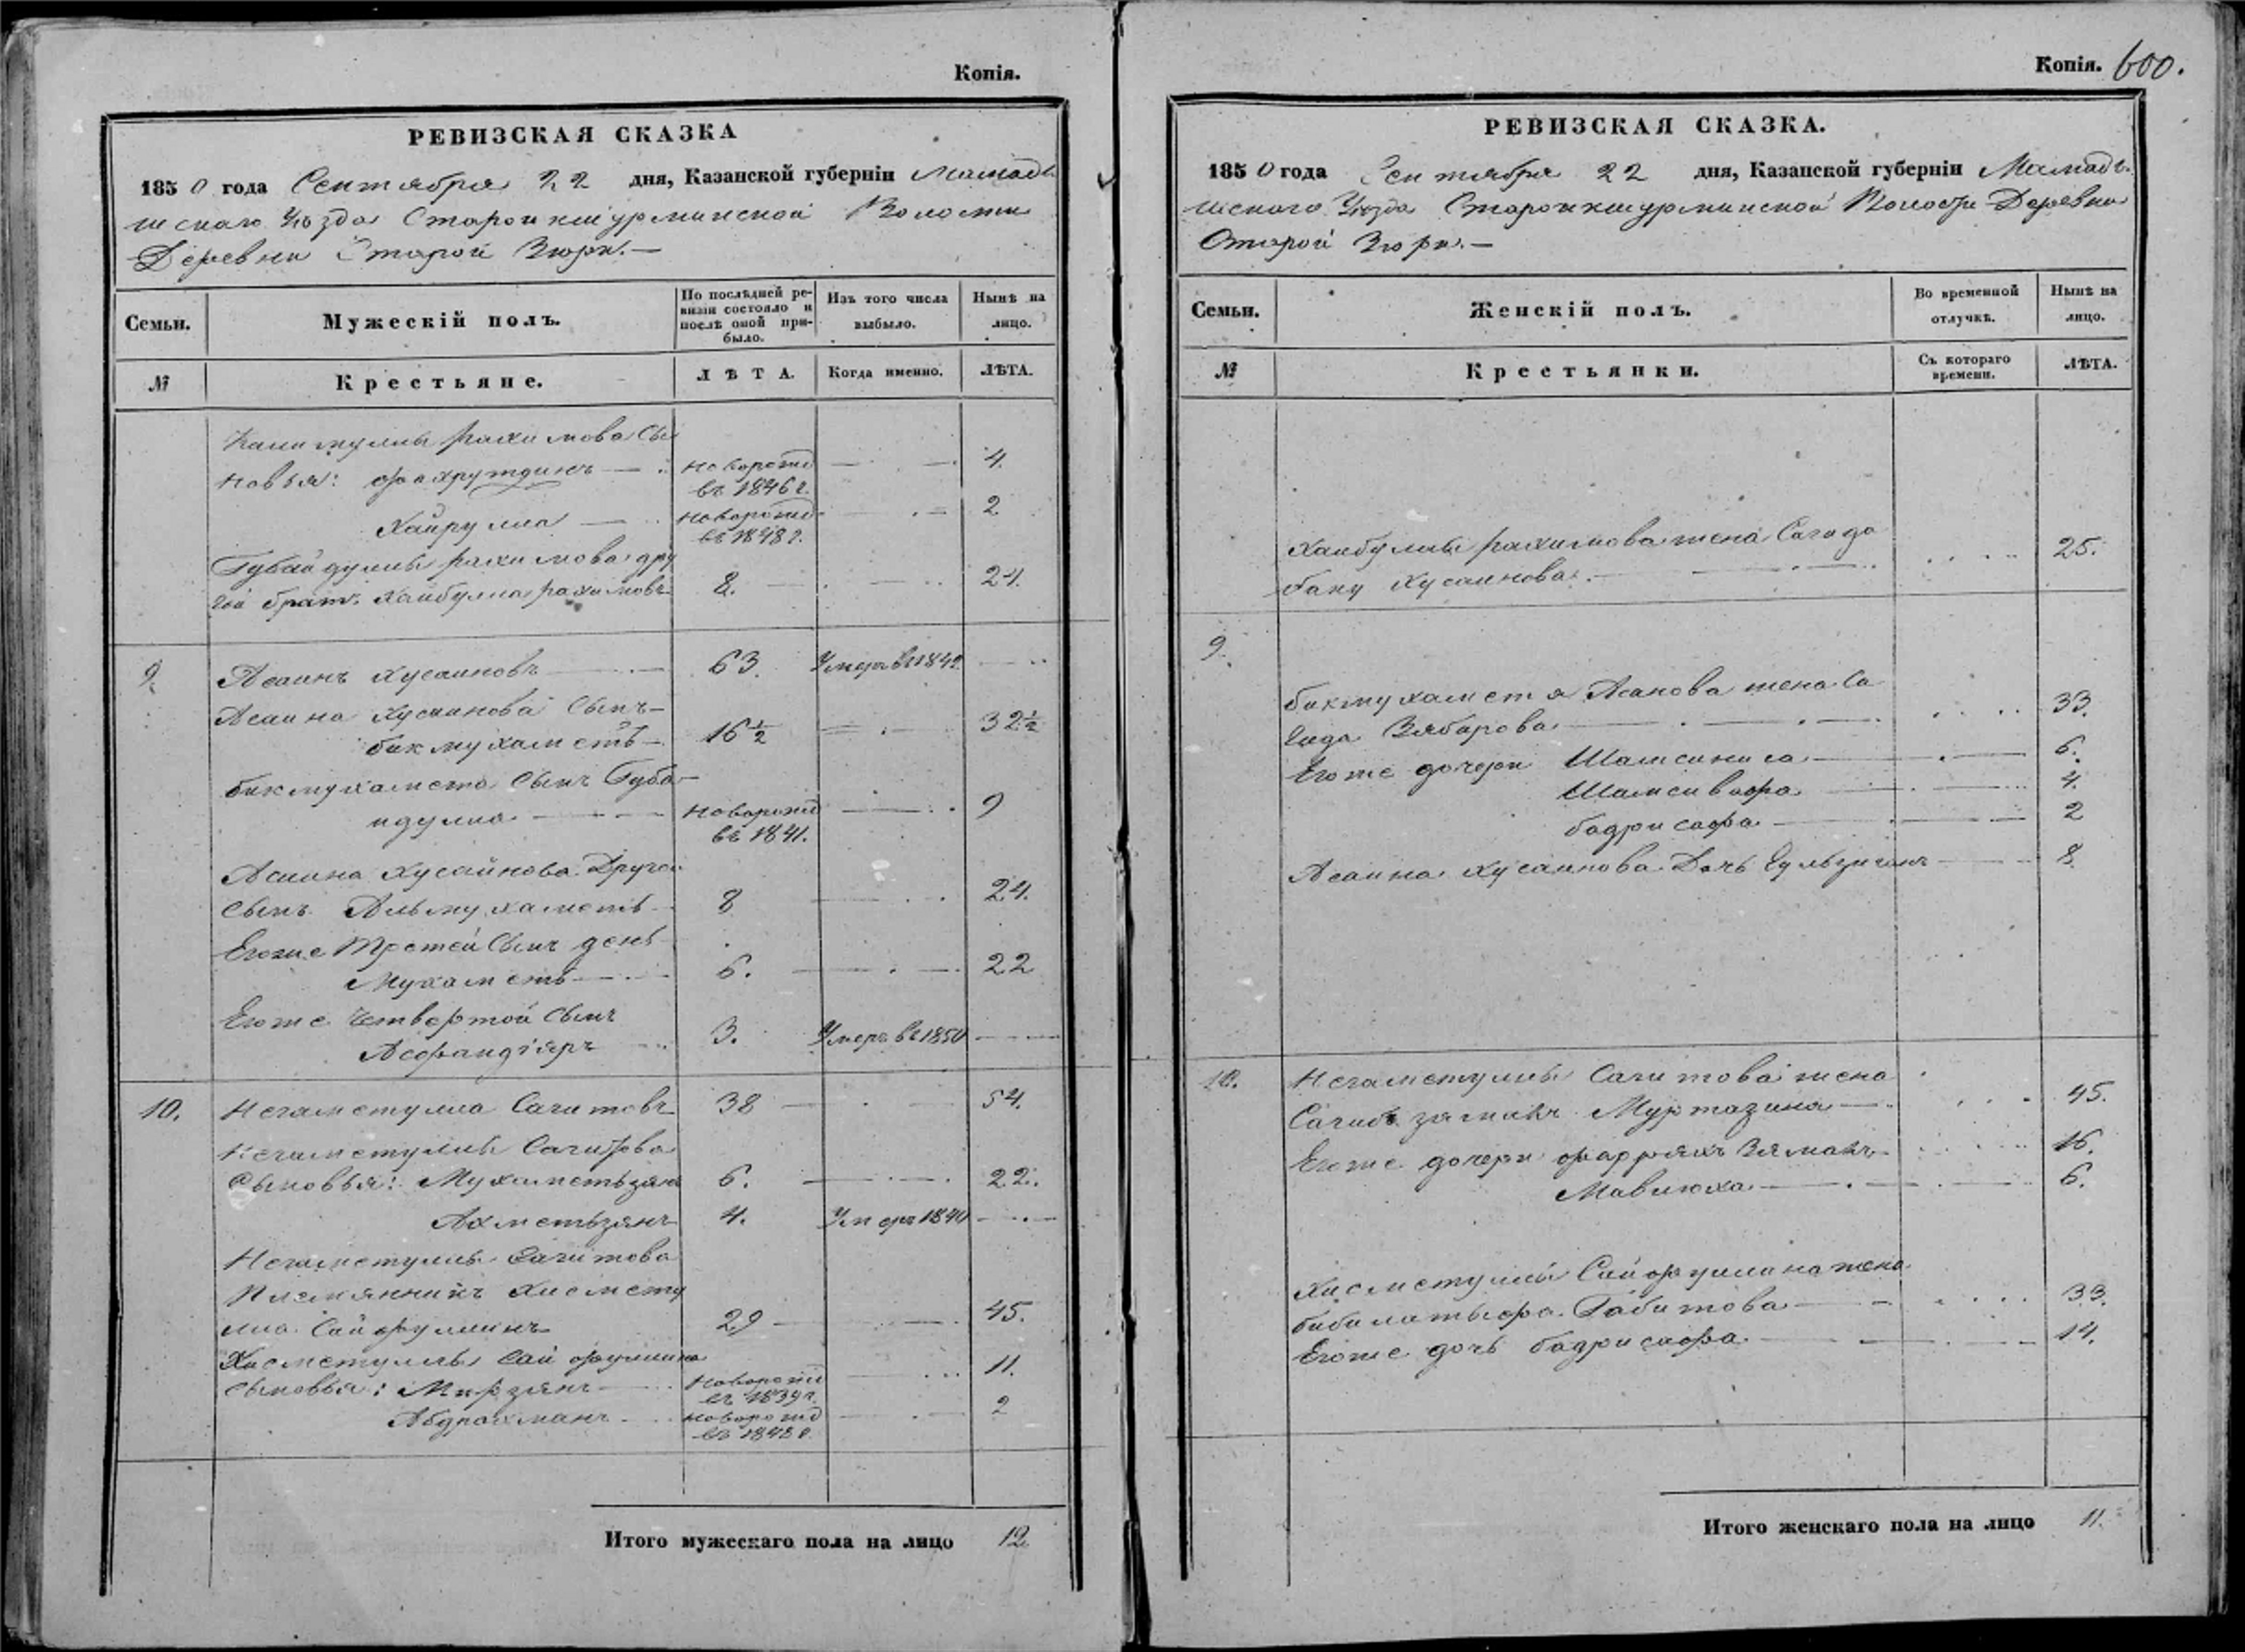 Копія.
РЕВИЗСКАЯ СКАЗКА
1850 года Сентября 22 дня, Казанской губерніи Мамады
шскаго Уѣзда Старокишурминской Волости
Деревни Старой Зюри.—
Семьи.
Мужескій полъ.
По послѣдней ре-
визіи состояло и
послѣ оной при-
было.
Изъ того числа
выбыло.
Нынѣ на
лицо.
№
Крестьяне.
ЛѢТА.
Когда именно.
ЛѢТА.
рахимова сы
новья: фахрутдинъ новорожд 4.
въ 1846 г.
Хайрулла новорожд 2
въ 1848 г.
Губайдуллы рахимова дру
гой братъ Хаибулла рахимовъ 8. 24.
9. Асаинъ Хусаиновъ 63. Умеръ в 1842
Асаина Хусаинова сынъ
бикмухаметъ 16½ 32½
бикмухамета сынъ Губа
идулла новорожд 9
въ 1841.
Асаина Хусаинова Другой
сынъ Альмухаметь 8 24.
Егоже Третей сынъ день
Мухаметь 6. 22
Егоже Четвертой сынъ
Асфандіяръ 3. Умеръ в 1850
10. Негаметулла Сагитовъ 38 54.
Негаметуллы Сагитова
сыновья: Мухаметьзянъ 6. 22.
Ахметьзянъ 4. Умеръ 1840
Негаметуллы Сагитова
Племянникъ Хисмету
лла Сайфуллинъ 29 45.
Хисметуллы Сайфуллина
сыновья: Мирзянъ новорожд 11.
въ 1839 г.
Абдрахманъ новорожд 2
въ 1848 г.
Итого мужескаго пола на лицо 12
Копія. 600.
РЕВИЗСКАЯ СКАЗКА.
1850 года Сентября 22 дня, Казанской губерніи Мамады-
шскаго Уѣзда Старокишурминской Волости Деревни
Старой Зюри.—
Семьи.
Женскій полъ.
Во временной
отлучкѣ.
Нынѣ на
лицо.
№
Крестьянки.
Съ котораго
времени.
ЛѢТА.
Хаибуллы рахимова жена Сагида
бану Хусаинова 25.
9.
бикмухаметя Асанова жена Са
гида Зябарова 33.
Егоже дочери Шамсиниса 6.
Шамсивафа 4.
бадрисафа 2
Асаина Хусаинова Дочь 8.
10. Негаметуллы Сагитова жена
Сагибзяманъ Муртазина 45.
Егоже дочери Зяманъ 16.
Мавлюха 6.
Хисметуллы Сайфуллина жена
бибилатыфа Габитова 33.
Егоже дочь бадрисафа 14.
Итого женскаго пола на лицо 11.